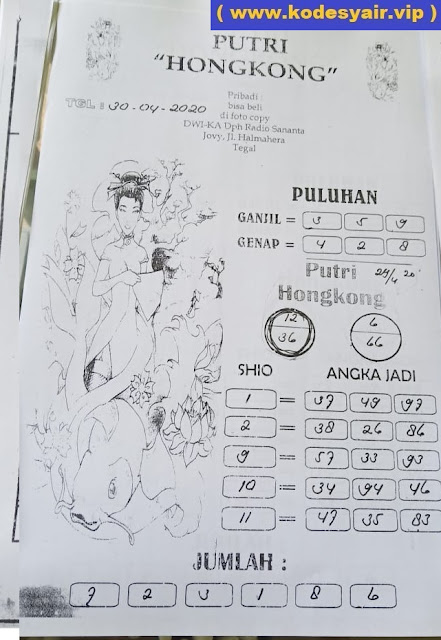 ( www.kodesyair.vip )
PUTRI
"HONGKONG"
TGL : 30-04-2020
Pribadi :
bisa beli
di foto copy
DWI-KA Dph Radio Sananta
Jovy, Jl. Halmahera
Tegal
PULUHAN
GANJIL = 3 5 9
GENAP = 4 2 8
Putri 24/4 20
Hongkong
12 6
36 66
SHIO ANGKA JADI
1 = 37 49 97
2 = 38 26 86
9 = 57 33 93
10 = 34 94 46
11 = 47 35 83
JUMLAH :
7 2 3 1 8 6